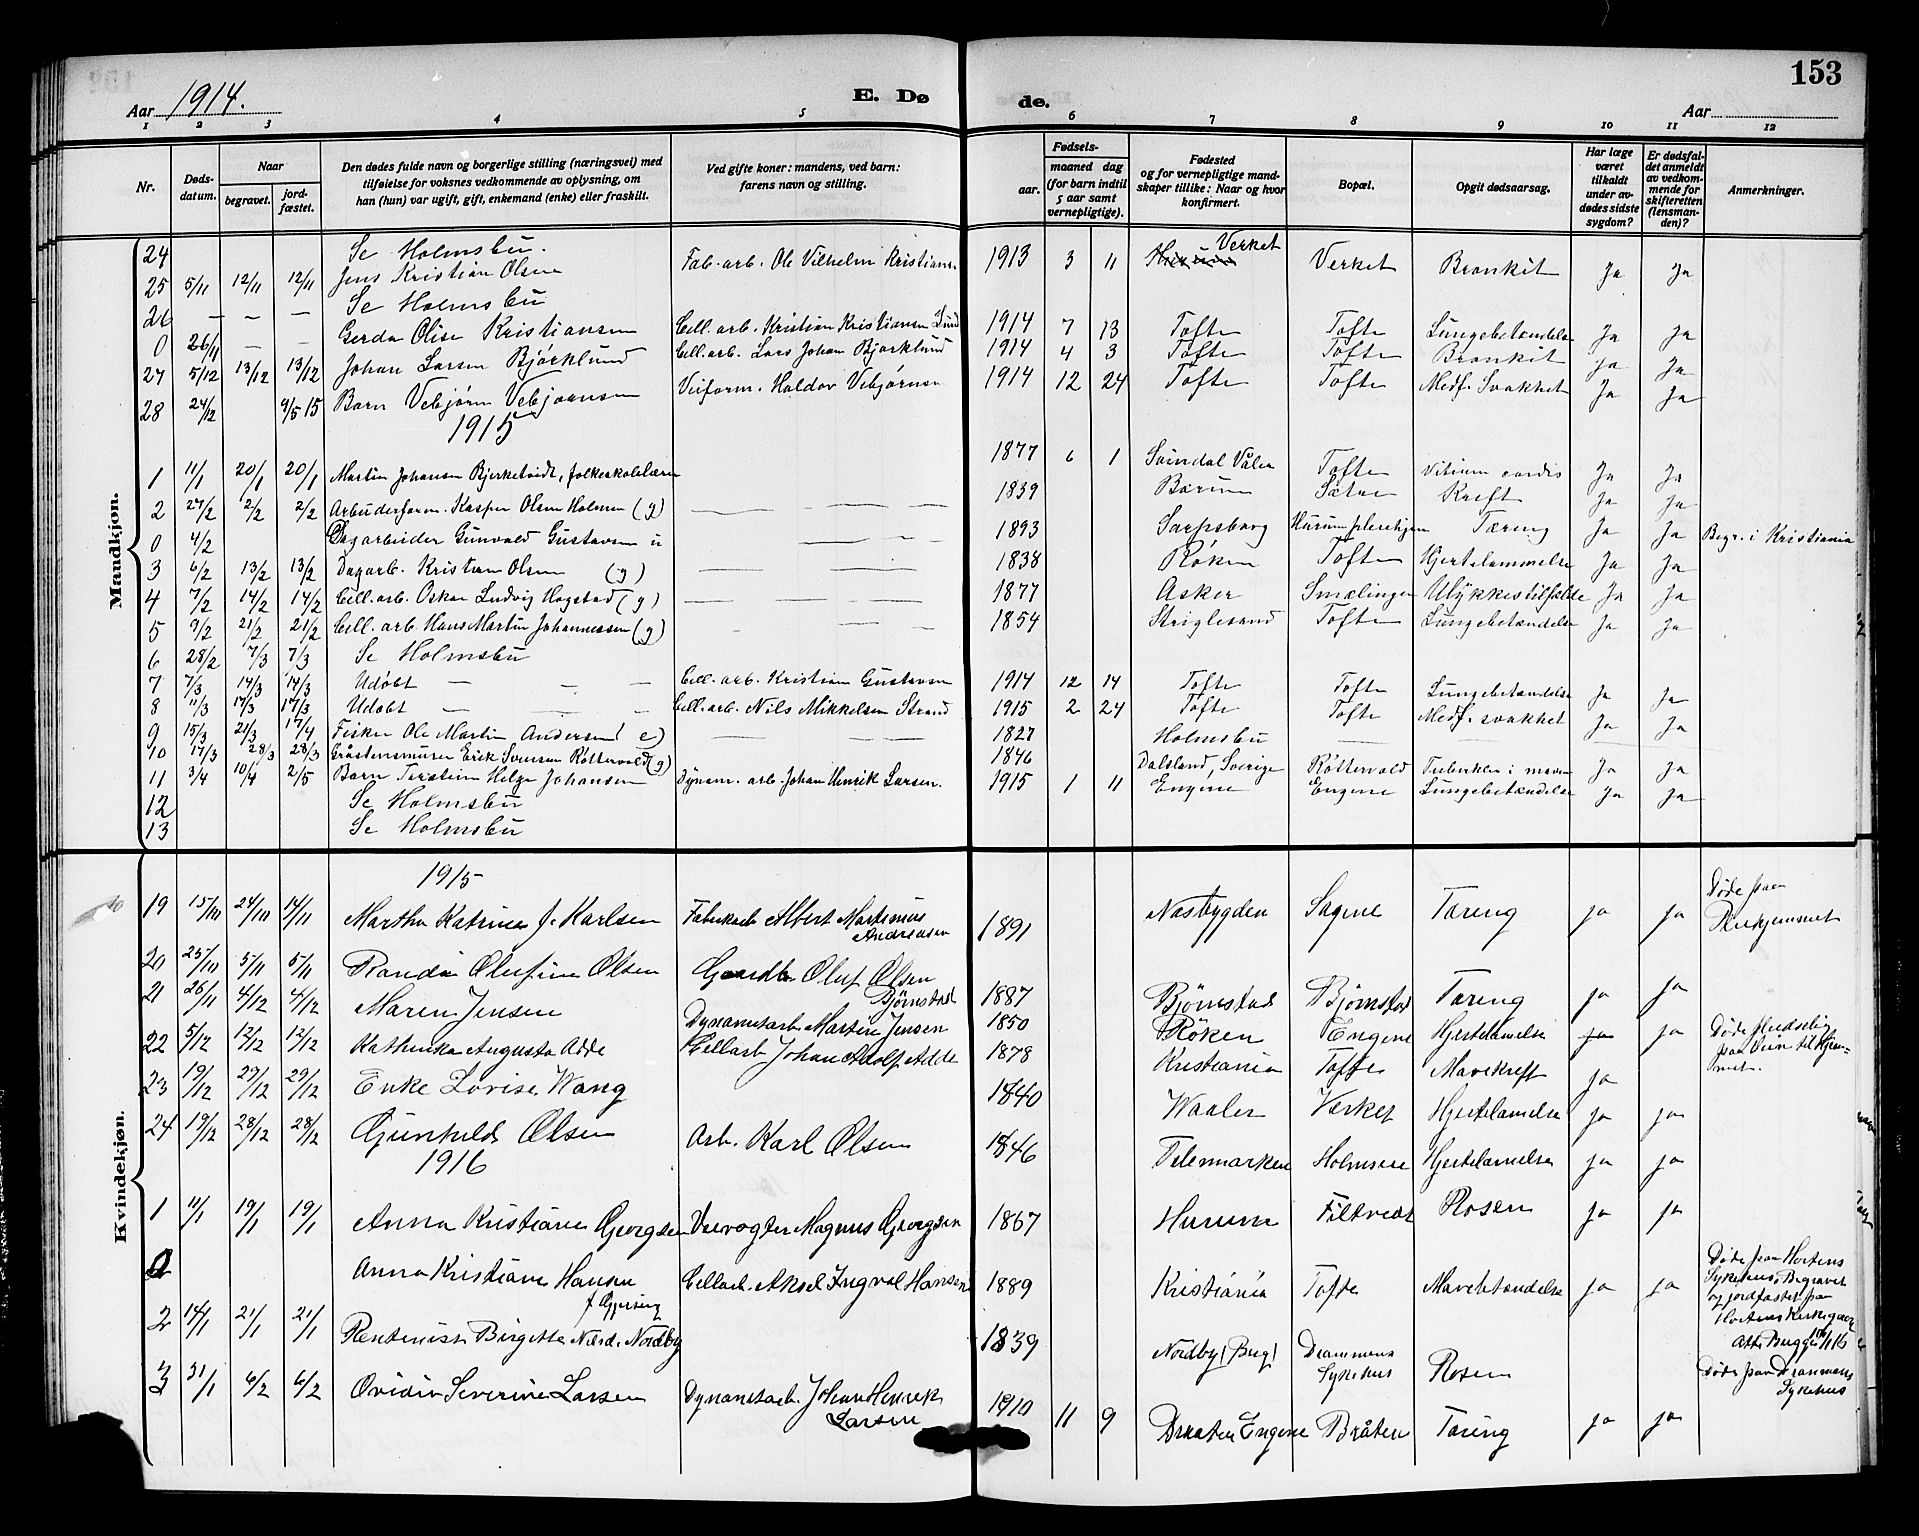 153
Aar 1914. E. Døde. Aar
1 2 3 4 5 6 7 8 9 10 11 12
Nr. Døds-datum. Naar begravet. jord-fæstet. Den dødes fulde navn og borgerlige stilling (næringsvei) med tilføielse for voksnes vedkommende av oplysning, om han (hun) var ugift, gift, enkemand (enke) eller fraskilt. Ved gifte koner: mandens, ved barn: farens navn og stilling. Fødsels- aar. maaned dag (for barn indtil 5 aar samt vernepligtige). Fødested og for vernepligtige mandskaper tillike: Naar og hvor konfirmert. Bopæl. Opgit dødsaarsag. Har læge været tilkaldt under avdødes sidste sygdom? Er dødsfaldet anmeldt av vedkommende for skifteretten (lensmanden)? Anmerkninger.
Mandkjøn.
24 Se Holmsbu.
25 5/11 12/11 12/11 Jens Kristian Olsen Fab. arb. Ole Vilhelm Kristians. 1913 3 11 Verket Verket Bronkit Ja Ja
26 — — — Se Holmsbu
0 26/11 — — Gerda Olise Kristiansen Cell. arb. Kristian Kristiansen Lund 1914 7 13 Tofte Tofte Lungebetændelse Ja Ja
27 5/12 13/12 13/12 Johan Larsen Bjørklund Cell. arb. Lars Johan Bjørklund 1914 4 3 Tofte Tofte Bronkit Ja Ja
28 24/12 9/5 15 Barn Vebjørn Vebjørnsen Veiform. Haldor Vebjørnsen 1914 12 24 Tofte Tofte Medf. Svakhet Ja Ja
1915
1 11/1 20/1 20/1 Martin Johansen Bjerketvedt, folkeskolelærer 1877 6 1 Svindal Våler Tofte Vitium cordis Ja Ja
2 27/2 2/2 2/2 Arbeiderform. Kasper Olsen Holmen (g) — — — 1839 Bærum Sætre Kreft Ja Ja
0 4/2 Dagarbeider Gunvald Gustavsen u — — 1893 Sarpsborg Hurum pleiehjem Tæring Ja Ja Begr. i Kristiania
3 6/2 13/2 13/2 Dagarb. Kristian Olsen (g) — — — 1838 Røken Tofte Hjertelammelse Ja Ja
4 7/2 14/2 14/2 Cell. arb. Oskar Ludvig Hagstad (g) — — — 1877 Asker Smælingen Ulykkestilfælde Ja Ja
5 9/2 21/2 21/2 Cell. arb. Hans Martin Johannessen (g) — — — 1854 Tofte Lungebetændelse Ja Ja
6 28/2 7/3 7/3 Se Holmsbu
7 7/3 14/3 14/3 Udøbt — — — Cell. arb. Kristian Gustavsen 1914 12 14 Tofte Tofte Lungebetændelse Ja Ja
8 11/3 17/3 17/3 Udøbt — — — Cell. arb. Nils Mikkelsen Strand 1915 2 24 Tofte Tofte Medf. svakhet Ja Ja
9 15/3 21/3 17/4 Fisker Ole Martin Andersen (e) — — — 1827 Holmsbu —
10 17/3 28/3 28/3 Gråstensmurer Erik Svensen Røttervold (g) 1846 Dalsland, Sverige Røttervold Tuberkler i maven Ja Ja
11 3/4 10/4 2/5 Barn Torstein Helge Johansen Dynam. arb. Johan Henrik Larsen. 1915 1 11 Engene Engene Lungebetændelse Ja Ja
12 Se Holmsbu
13 Se Holmsbu
Kvindekjøn.
1915
19 15/10 24/10 14/11 Martha Katrine f. Karlsen Fabrikarb Albert Martinius Andreasen 1891 Næsbygden Sagene Tæring ja ja Døde paa Pleiehjemmet
20 25/10 5/11 5/11 Randi Olufine Olsen Gaardbr Oluf Olsen Bjørnstad 1887 Bjørnstad Bjørnstad Tæring ja ja
21 26/11 4/12 4/12 Maren Jensen Dynamitarb Martin Jensen 1850 Røken Engene Hjertelamelse ja ja Døde pludselig paa Veien til Hjemmet.
22 5/12 12/12 12/12 Kathinka Augusta Adde Cellarb Johan Adolf Adde 1878 Kristiania Tofte Mavekreft ja
23 19/12 29/12 29/12 Enke Lovise Wang 1840 Waaler Verket Hjertelamelse ja ja
24 19/12 28/12 28/12 Gunhild Olsen Arb. Karl Olsen 1846 Telemarken Holmene Hjertelamelse ja ja
1916
1 11/1 19/1 19/1 Anna Kristiane Georgsen Veivogter Magnus Georgsen 1867 Hurum Filtvedt Rosen ja ja
0 Anna Kristiane Hansen f. Gjersing Cellarb. Aksel Ingval Hansen 1889 Kristiania Tofte Mavebetændelse ja ja Døde paa Hortens Sykehus, Begravet og jordfæstet paa Hortens Kirkegaard Att. Bugge
2 14/1 21/1 21/1 Rentenist Birgette Næsd. Nordby 1839 Nordby (Bug) Drammens Sykehus Rosen Døde paa Drammens Sykehus
3 31/1 6/2 6/2 Ovidia Severine Larsen Dynamitarb Johan Henrik Larsen 1910 11 9 Braaten Engene Bråten Tæring ja ja